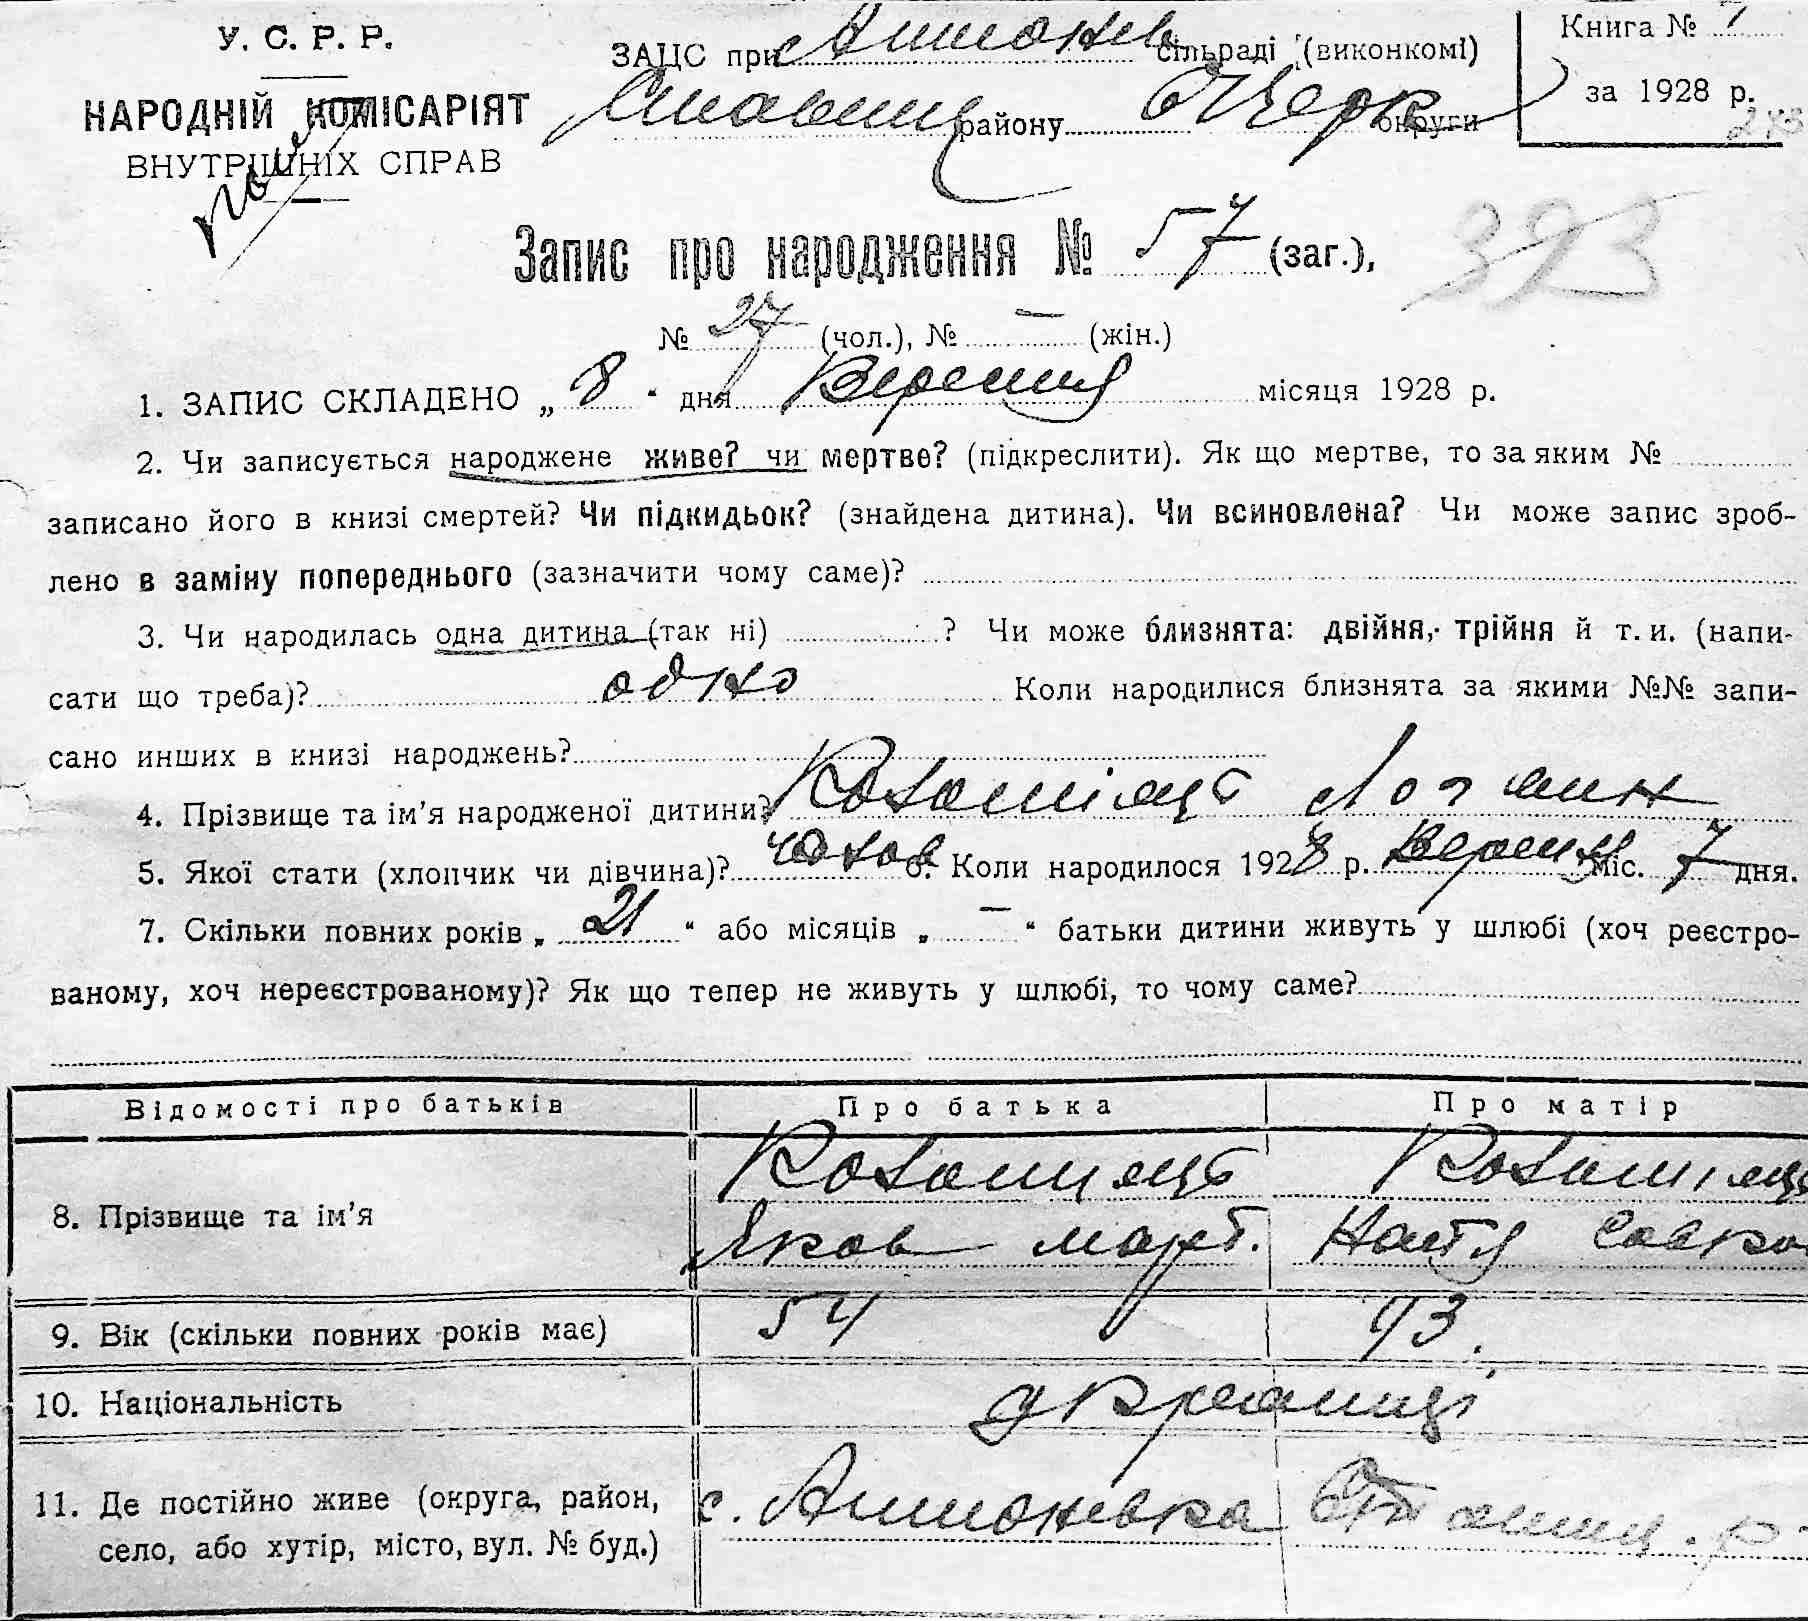 У. С. Р. Р.
НАРОДНІЙ КОМІСАРІЯТ
ВНУТРІШНІХ СПРАВ
ЗАЦС при Антонів сільраді (виконкомі)
Ставищ району Б Черк округи
Книга № 1
за 1928 р.
Запис про народження № 57 (заг.),
393
№ 27 (чол.), № — (жін.)
1. ЗАПИС СКЛАДЕНО „ 8 " дня Вересня місяця 1928 р.
2. Чи записується народжене живе? чи мертве? (підкреслити). Як що мертве, то за яким №
записано його в книзі смертей? Чи підкидьок? (знайдена дитина). Чи всиновлена? Чи може запис зроб-
лено в заміну попереднього (зазначити чому саме)?
3. Чи народилась одна дитина (так ні) ? Чи може близнята: двійня, трійня й т. и. (напи-
сати що треба)? одно Коли народилися близнята за якими №№ запи-
сано инших в книзі народжень?
4. Прізвище та ім'я народженої дитини? Коломієць
5. Якої стати (хлопчик чи дівчина)? чолов 6. Коли народилося 1928 р. Вересня міс. 7 дня.
7. Скільки повних років „ 21 " або місяців „ — " батьки дитини живуть у шлюбі (хоч реєстро-
ваному, хоч нереєстрованому)? Як що тепер не живуть у шлюбі, то чому саме?
Відомості про батьків Про батька Про матір
8. Прізвище та ім'я Коломиець Коломієць
Яков март. Настя Савко
9. Вік (скільки повних років має) 54 43.
10. Національність українці
11. Де постійно живе (округа, район, село, або хутір, місто, вул. № буд.) с. Антонівка Ставищ. р.